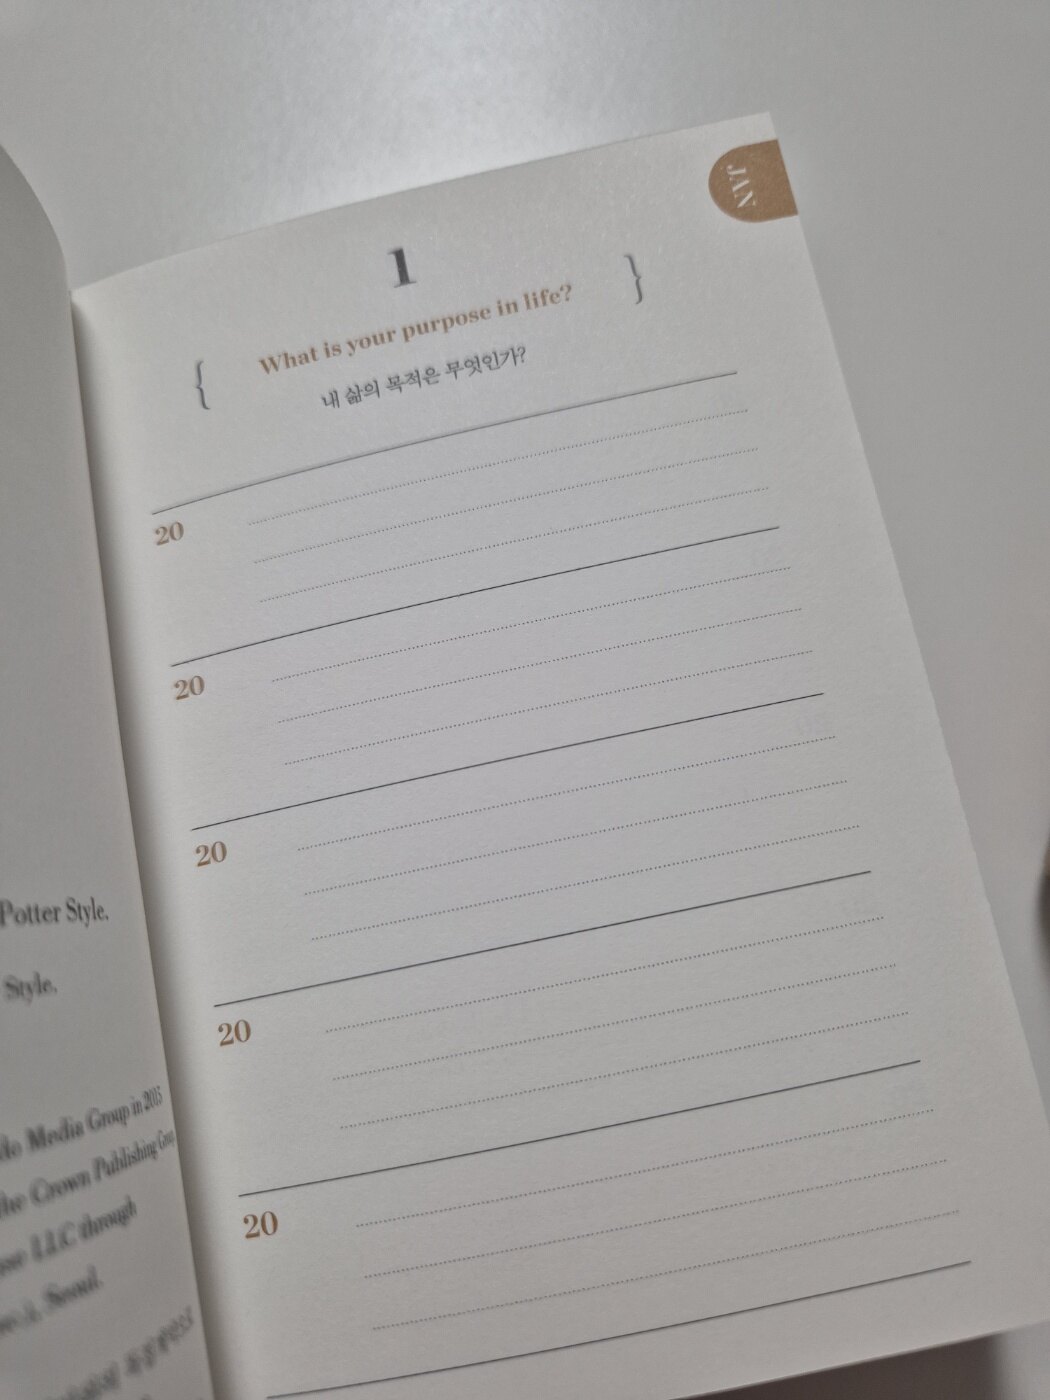 Potter Style.
Style.
Media Group in 2015
The Crown Publishing
LLC through
Seoul.
JAN
1
{ What is your purpose in life? }
내 삶의 목적은 무엇인가?
20
20
20
20
20